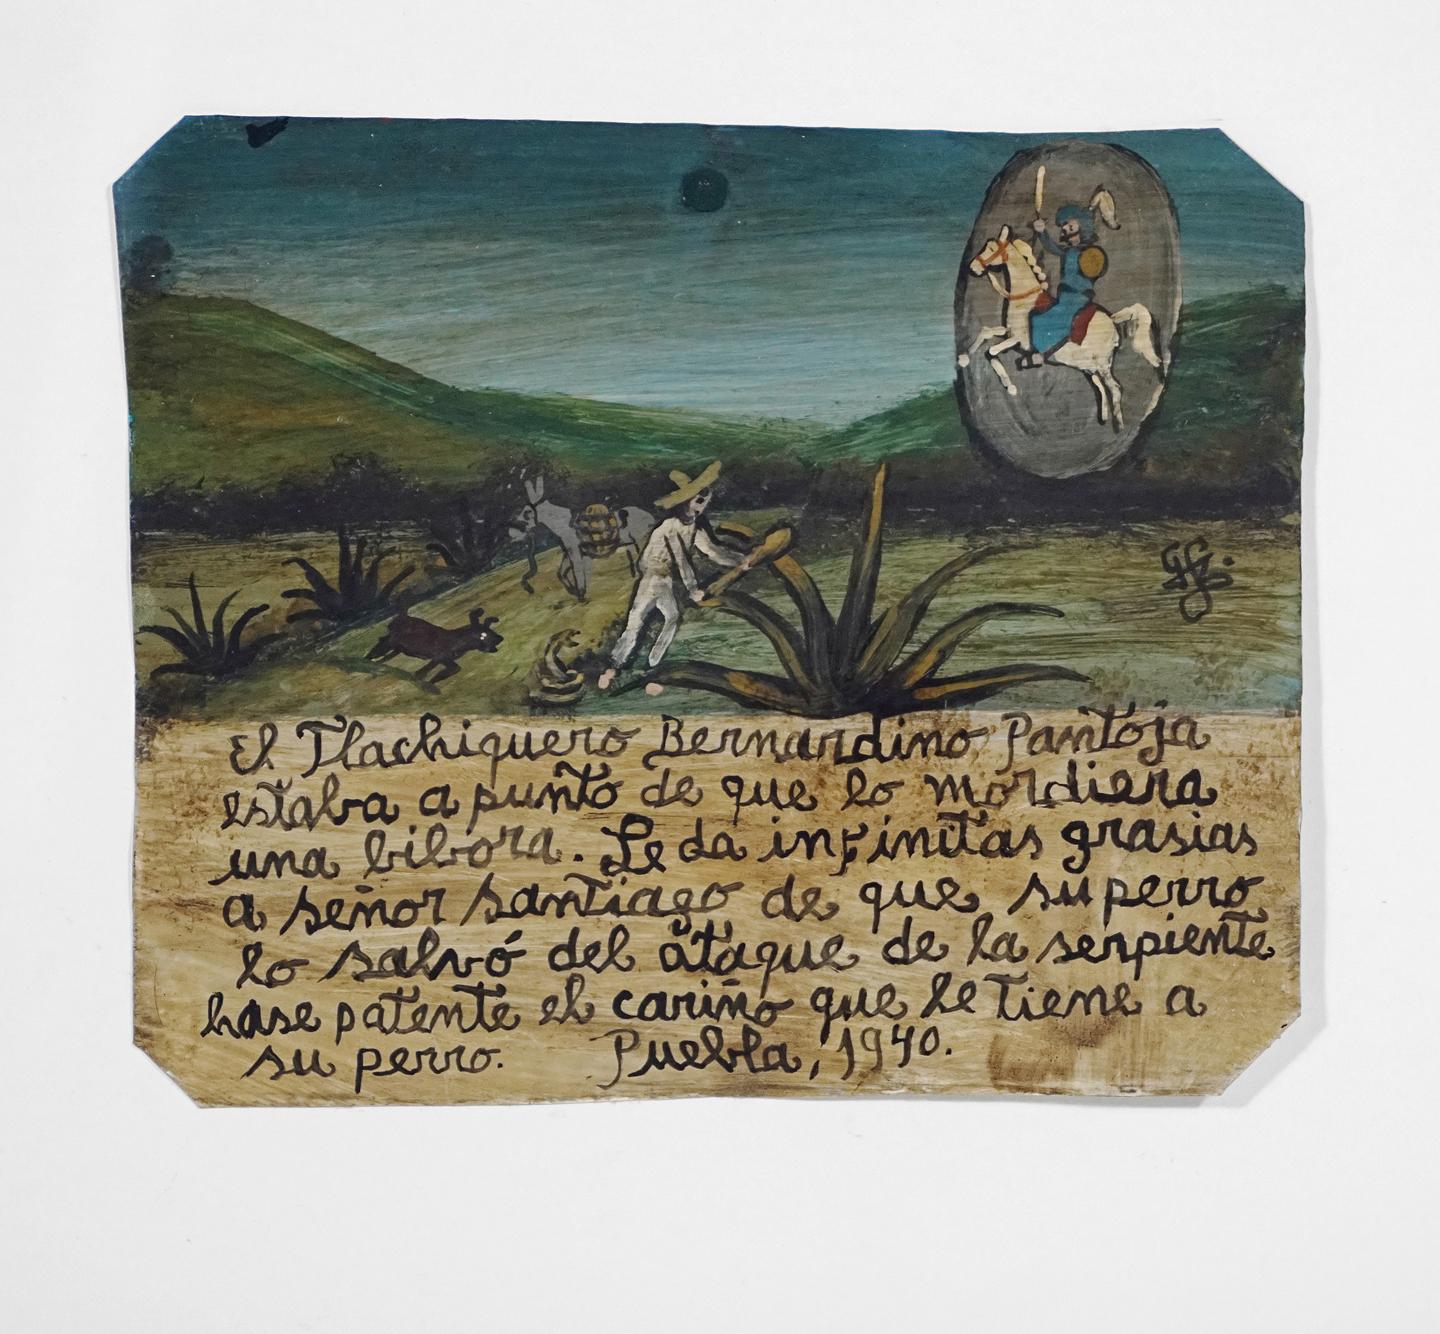 El Tlachiquero Bernardino Pantoja
estaba a punto de que lo mordiera
una bibora. Le da infinitas grasias
a señor santiago de que su perro
lo salvó del ataque de la serpiente
hase patente el cariño que le tiene a
su perro. Puebla, 1940.